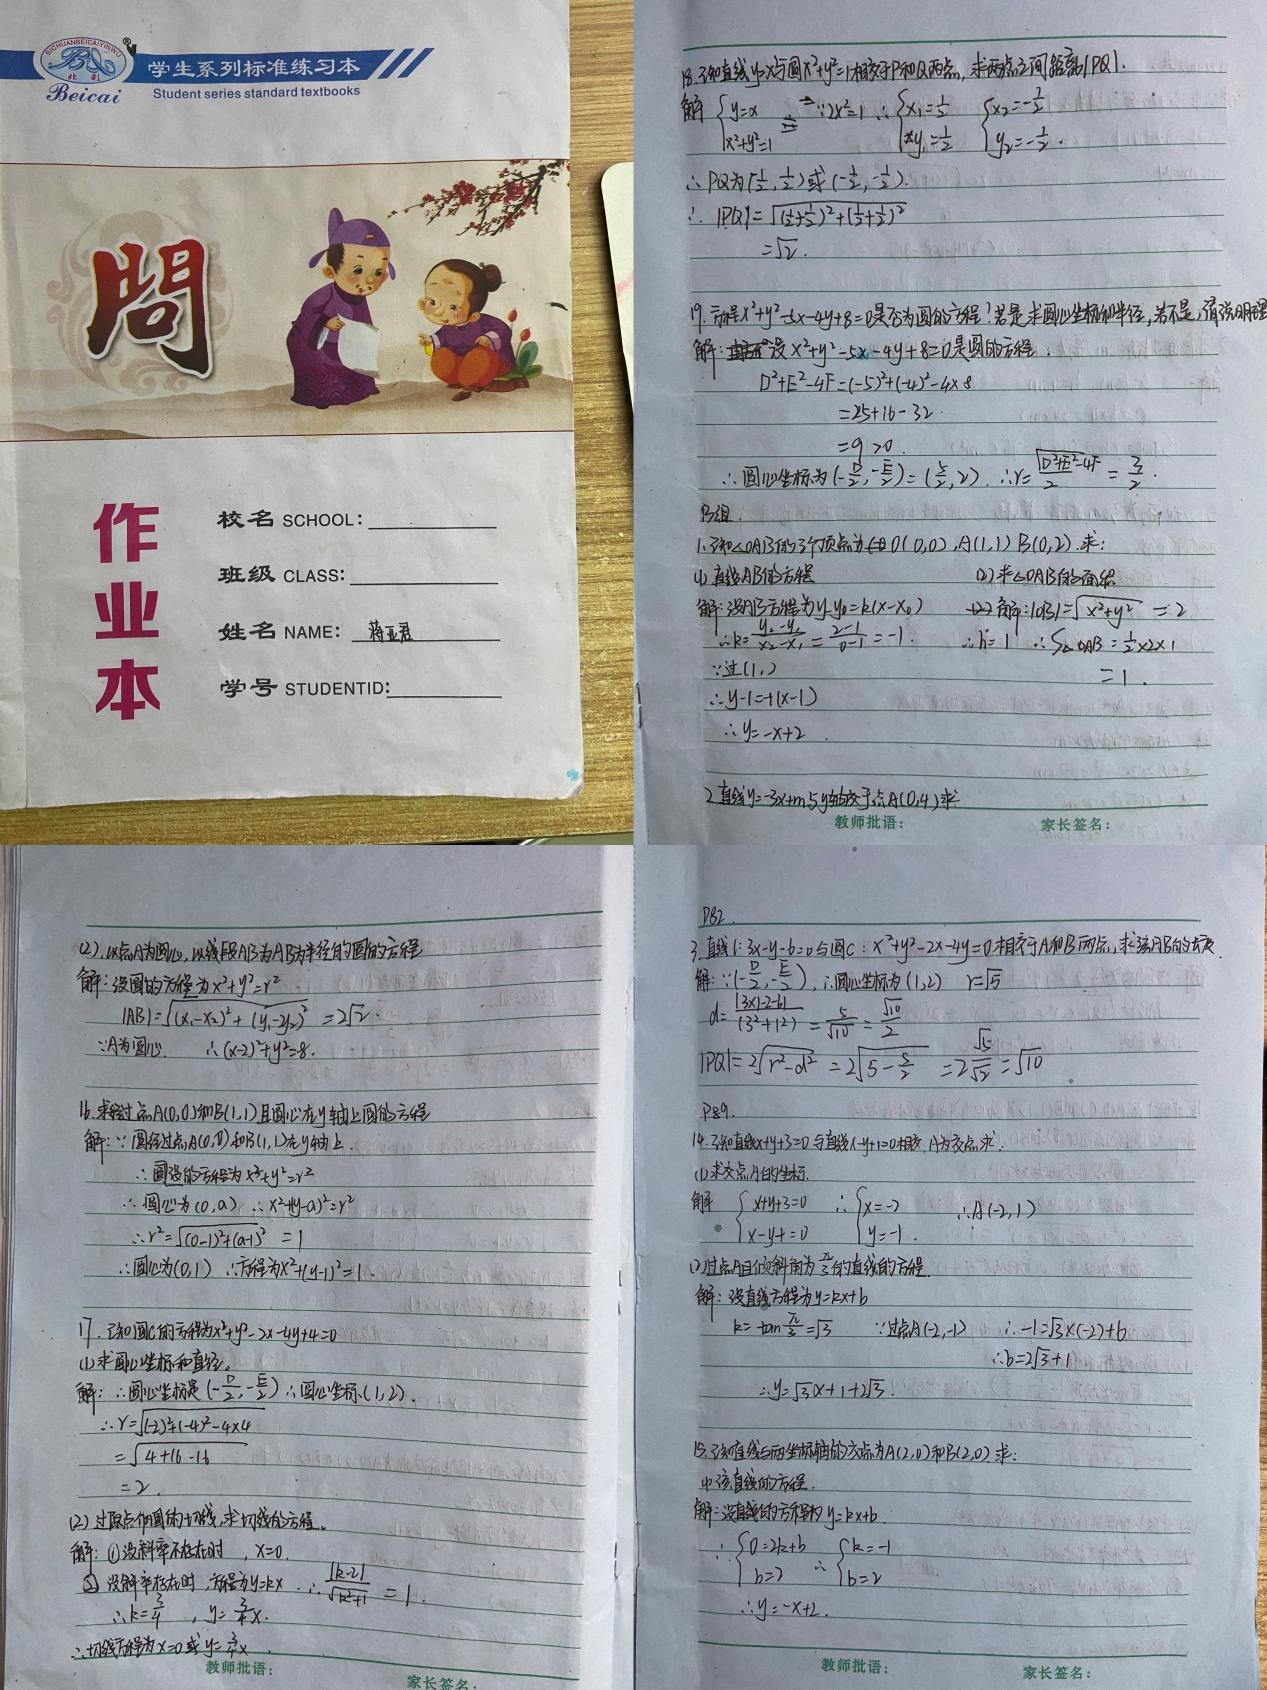 SICHUANBEICAIYINWU
北彩
Beicai
®
学生系列标准练习本
Student series standard textbooks
問
作业本
校名 SCHOOL:
班级 CLASS:
姓名 NAME: 蒋亚君
学号 STUDENTID:
18.已知直线y=x与圆x²+y²=1相交于P和Q两点,求两点之间距离|PQ|.
解 {y=x x²+y²=1 ∵2x²=1 ∴ {x₁=1/2 y₁=1/2 {x₂=-1/2 y₂=-1/2.
∴PQ为(1/2,1/2)或(-1/2,-1/2).
∴ |PQ|=√(1/2+1/2)²+(1/2+1/2)²
=√2.
19.方程x²+y²-5x-4y+8=0是否为圆的方程?若是求圆心坐标和半径,若不是,请说明理
解: 设x²+y²-5x-4y+8=0是圆的方程.
D²+E²-4F=(-5)²+(-4)²-4×8
=25+16-32.
=9>0.
∴圆心坐标为(-D/2,-E/2)=(5/2,2). ∴r=√D²+E²-4F/2=3/2.
B组.
1.已知△OAB的3个顶点为O(0,0),A(1,1)B(0,2).求:
(1)直线AB的方程 (2)求△OAB的面积
解:设AB方程为y-y₀=k(x-x₀) (2)解:|OB|=√x²+y² =2
∴k=y₂-y₁/x₂-x₁=2-1/0-1=-1. ∴h=1 ∴S△OAB=1/2×2×1
∵过(1,) =1.
∴y-1=-1(x-1)
∴y=-x+2.
2直线y=-3x+m与y轴交于点A(0,4)求
教师批语: 家长签名:
(2).以点A为圆心,以线段AB为AB为半径的圆的方程
解:设圆的方程为x²+y²=r²
|AB|=√(x₁-x₂)²+(y₁-y₂)² =2√2.
∵A为圆心. ∴(x-2)²+y²=8.
16.求经过点A(0,0)和B(1,1)且圆心在y轴上圆的方程
解:∵圆经过点A(0,0)和B(1,1)在y轴上.
∴圆设的方程为x²+y²=r²
∴圆心为(0,a) ∴x²+(y-a)²=r²
∴r²=√(0-1)²+(a-1)² =1
∴圆心为(0,1) ∴方程为x²+(y-1)²=1.
17.已知圆C的方程为x²+y²-2x-4y+4=0
(1)求圆心坐标和直径。
解:∴圆心坐标是(-D/2,-E/2)∴圆心坐标(1,2).
∴r=√(-2)²+(-4)²-4×4
=√4+16-16
=2.
(2)过原点作圆的切线,求切线的方程。
解:①设斜率不存在时,x=0.
②设斜率存在时,方程为y=kx ∴|k-2|/√k²+1=1.
∴k=3/4, y=3/4x.
∴切线方程为x=0或y=3/4x.
教师批语: 家长签名:
P82.
3.直线l:3x-y-6=0与圆C:x²+y²-2x-4y=0相交于A和B两点,求弦AB的长度.
解:∵(-D/2,-E/2),∴圆心坐标为(1,2) r=√5
d=|3×1-2-6|/(3²+1²)=5/√10=√10/2
|PQ|=2√r²-d²=2√5-5/2 =2√5/√2=√10
P89.
14.已知直线x+y+3=0与直线x-y+1=0相交,A为交点求:
(1)求交点A的坐标.
解 {x+y+3=0 x-y+=0 ∴{x=-2 y=-1. ∴A(-2,1)
(2)过点A且倾斜角为π/3的直线的方程.
解:设直线方程为y=kx+b
k=tanπ/3=√3 ∵过点A(-2,-1) ∴-1=√3×(-2)+b
∴b=2√3+1
∴y=√3x+1+2√3.
15.已知直线与两坐标轴的交点为A(2,0)和B(2,0)求:
(1)该直线的方程.
解:设直线的方程为y=kx+b.
∴{0=2k+b b=2 ∴{k=-1 b=2
∴y=-x+2.
教师批语: 家长签名: